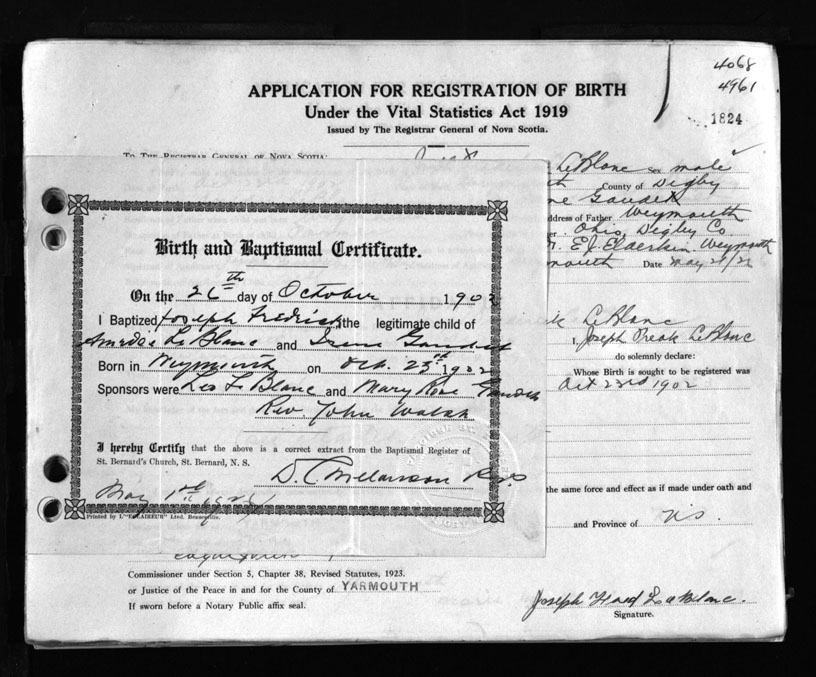 4068
4961
1824
APPLICATION FOR REGISTRATION OF BIRTH
Under the Vital Statistics Act 1919
Issued by The Registrar General of Nova Scotia.
TO THE REGISTRAR GENERAL OF NOVA SCOTIA:
LeBlanc Sex male
County of Digby
Gaudet
Address of Father Weymouth
Ohio, Digby Co
Weymouth
Date May 21/26
LeBlanc
I, Joseph LeBlanc
do solemnly declare:
Whose Birth is sought to be registered was
Oct 23rd 1902
the same force and effect as if made under oath and
and Province of N.S.
Birth and Baptismal Certificate.
On the 26th day of October 1902
I Baptized Joseph Fredrick the legitimate child of
LeBlanc and Irene Gaudet
Born in Weymouth on Oct. 23rd 1902
Sponsors were Leo LeBlanc and Mary Rose Gaudet
Rev. John Walsh
I hereby Certify that the above is a correct extract from the Baptismal Register of
St. Bernard's Church, St. Bernard, N. S.
D. C. Melanson
May
Printed by L'"ECLAIREUR" Ltd, Beauceville.
Commissioner under Section 5, Chapter 38, Revised Statutes, 1923.
or Justice of the Peace in and for the County of YARMOUTH
If sworn before a Notary Public affix seal.
Joseph LeBlanc.
Signature.